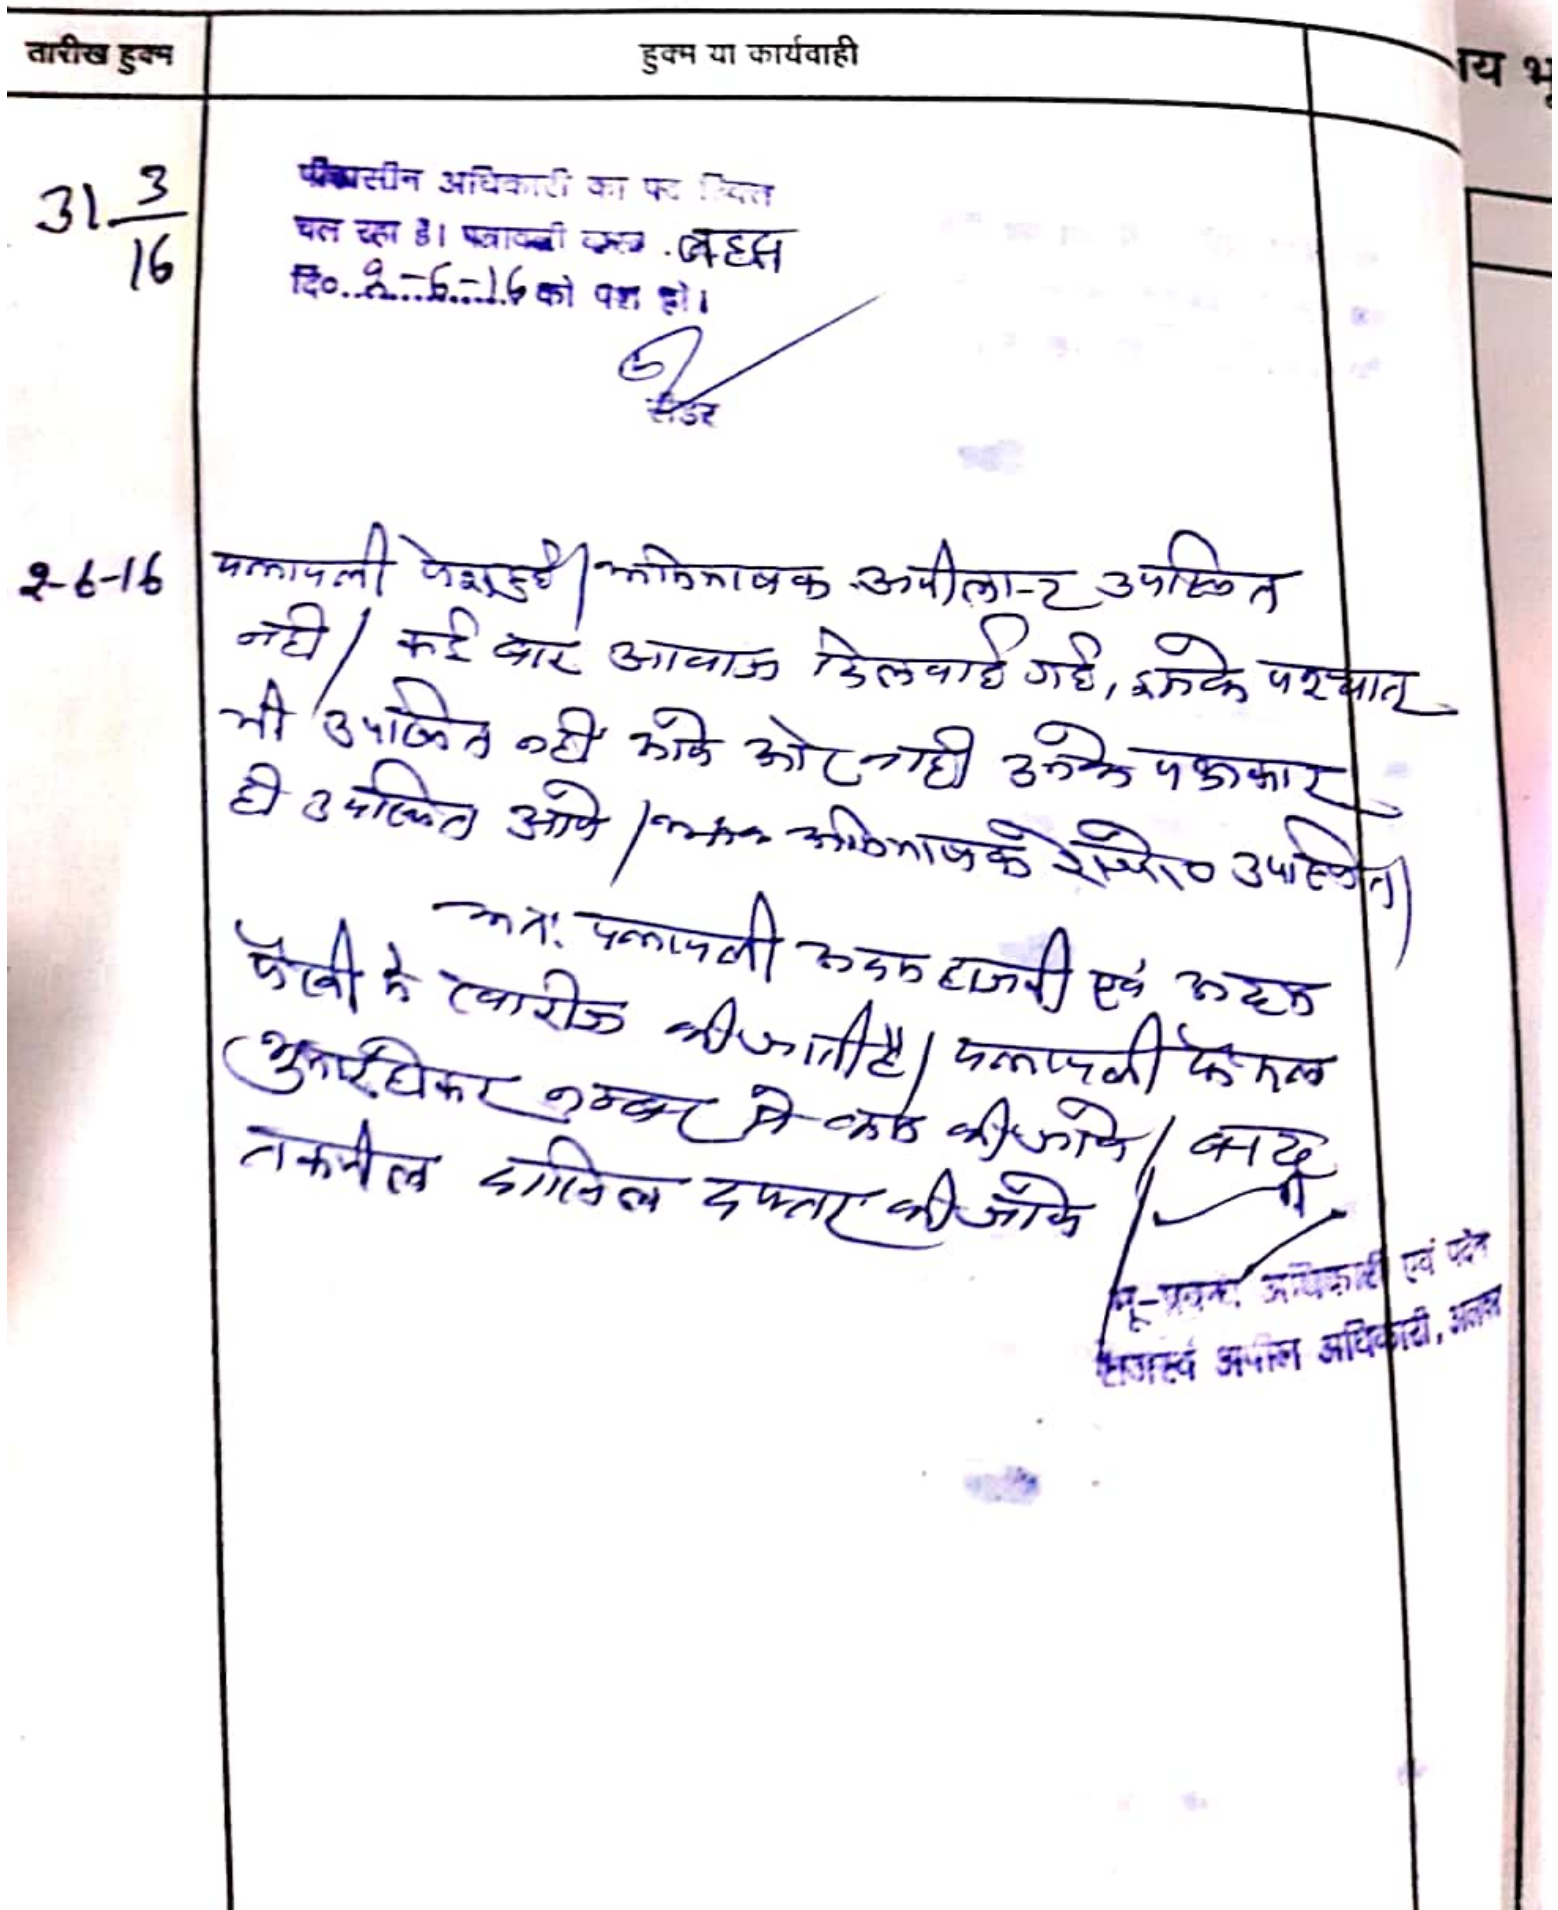 तारीख हुक्म
हुक्म या कार्यवाही
य भू
31 3/16
पीठासीन अधिकारी का पद रिक्त
चल रहा है। पत्रावली वास्ते बहस
दि० 2-6-16 को पेश हो।
रीडर
2-6-16
पत्रावली पेश हुई। अभिभाषक अपीलान्ट उपस्थित
नही। कई बार आवाज दिलवाई गई, इसके पश्चात्
भी उपस्थित नहीं आये और नाही उनके पक्षकार
ही उपस्थित आये। अभिभाषक रेस्पो० उपस्थित।
अतः पत्रावली अदम हाजरी एवं अदम
पैरवी मे खारीज की जाती है। पत्रावली फैसल
शुमार होकर नम्बर से कम की जावे। बाद
तकमील दाखिल दफ्तर की जावे।
भू-प्रबन्ध अधिकारी एवं पदेन
राजस्व अपील अधिकारी, अलवर